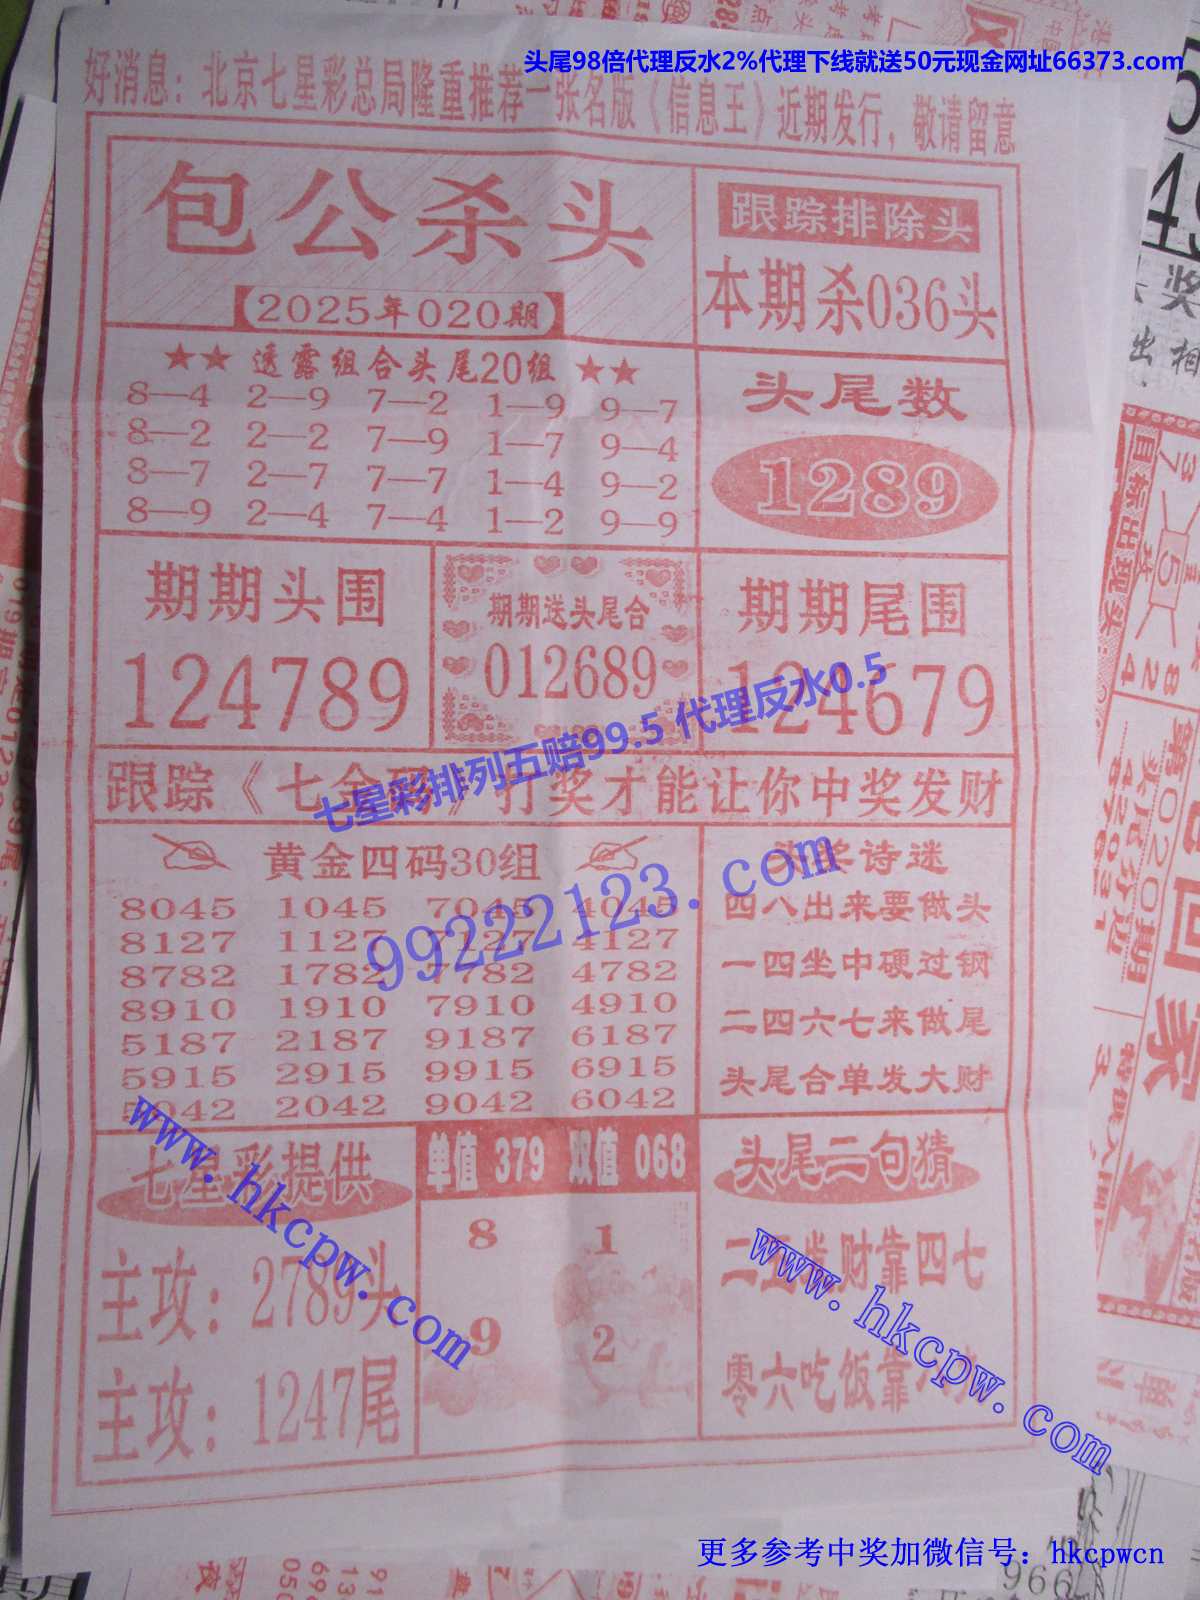 头尾98倍代理反水2%代理下线就送50元现金网址66373.com
好消息：北京七星彩总局隆重推荐一张名版《信息王》近期发行，敬请留意
包公杀头
2025年020期
跟踪排除头
本期杀036头
★★透露组合头尾20组★★
8—4 2—9 7—2 1—9 9—7
8—2 2—2 7—9 1—7 9—4
8—7 2—7 7—7 1—4 9—2
8—9 2—4 7—4 1—2 9—9
头尾数
1289
期期头围
124789
期期送头尾合
012689
期期尾围
124679
七星彩排列五赔99.5 代理反水0.5
跟踪《七金码》打奖才能让你中奖发财
黄金四码30组
8045 1045 7045 4045
8127 1127 7127 4127
8782 1782 7782 4782
8910 1910 7910 4910
5187 2187 9187 6187
5915 2915 9915 6915
5042 2042 9042 6042
99222123.com
头奖诗迷
四八出来要做头
一四坐中硬过钢
二四六七来做尾
头尾合单发大财
七星彩提供
主攻：2789头
主攻：1247尾
www.hkcpw.com
单值 379 双值 068
8 1
9 2
头尾二句猜
二五发财靠四七
零六吃饭靠
www.hkcpw.com
更多参考中奖加微信号：hkcpwcn
966